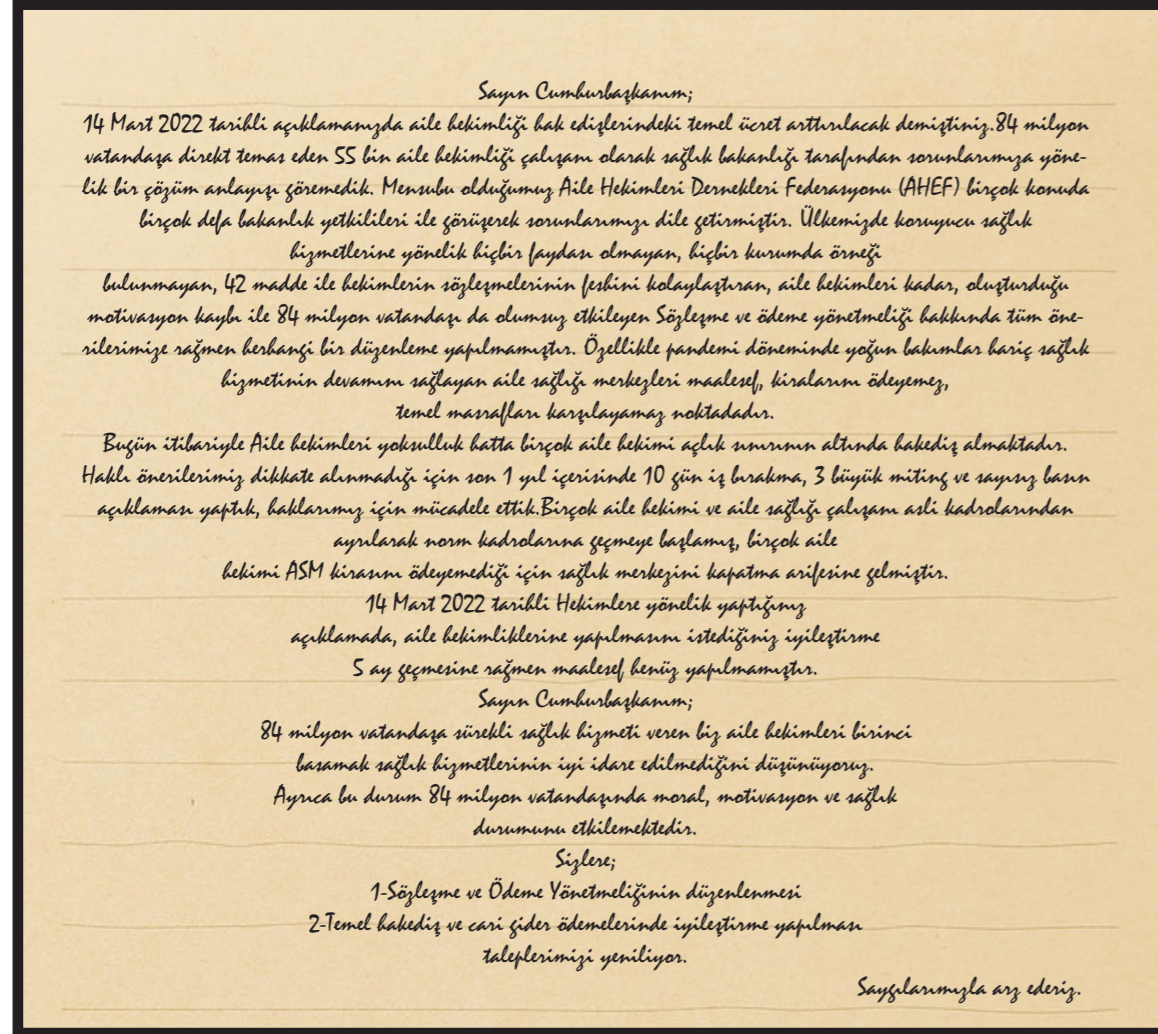 Sayın Cumhurbaşkanım;
14 Mart 2022 tarihli açıklamanızda aile hekimliği hak edişlerindeki temel ücret arttırılacak demiştiniz.84 milyon
vatandaşa direkt temas eden 55 bin aile hekimliği çalışanı olarak sağlık bakanlığı tarafından sorunlarımıza yöne-
lik bir çözüm anlayışı göremedik. Mensubu olduğumuz Aile Hekimleri Dernekleri Federasyonu (AHEF) birçok konuda
birçok defa bakanlık yetkilileri ile görüşerek sorunlarımızı dile getirmiştir. Ülkemizde koruyucu sağlık
hizmetlerine yönelik hiçbir faydası olmayan, hiçbir kurumda örneği
bulunmayan, 42 madde ile hekimlerin sözleşmelerinin feshini kolaylaştıran, aile hekimleri kadar, oluşturduğu
motivasyon kaybı ile 84 milyon vatandaşı da olumsuz etkileyen Sözleşme ve ödeme yönetmeliği hakkında tüm öne-
rilerimize rağmen herhangi bir düzenleme yapılmamıştır. Özellikle pandemi döneminde yoğun bakımlar hariç sağlık
hizmetinin devamını sağlayan aile sağlığı merkezleri maalesef, kiralarını ödeyemez,
temel masrafları karşılayamaz noktadadır.
Bugün itibariyle Aile hekimleri yoksulluk hatta birçok aile hekimi açlık sınırının altında hakediş almaktadır.
Haklı önerilerimiz dikkate alınmadığı için son 1 yıl içerisinde 10 gün iş bırakma, 3 büyük miting ve sayısız basın
açıklaması yaptık, haklarımız için mücadele ettik.Birçok aile hekimi ve aile sağlığı çalışanı asli kadrolarından
ayrılarak norm kadrolarına geçmeye başlamış, birçok aile
hekimi ASM kirasını ödeyemediği için sağlık merkezini kapatma arifesine gelmiştir.
14 Mart 2022 tarihli Hekimlere yönelik yaptığınız
açıklamada, aile hekimliklerine yapılmasını istediğiniz iyileştirme
5 ay geçmesine rağmen maalesef henüz yapılmamıştır.
Sayın Cumhurbaşkanım;
84 milyon vatandaşa sürekli sağlık hizmeti veren biz aile hekimleri birinci
basamak sağlık hizmetlerinin iyi idare edilmediğini düşünüyoruz.
Ayrıca bu durum 84 milyon vatandaşında moral, motivasyon ve sağlık
durumunu etkilemektedir.
Sizlere;
1-Sözleşme ve Ödeme Yönetmeliğinin düzenlenmesi
2-Temel hakediş ve cari gider ödemelerinde iyileştirme yapılması
taleplerimizi yeniliyor.
Saygılarımızla arz ederiz.